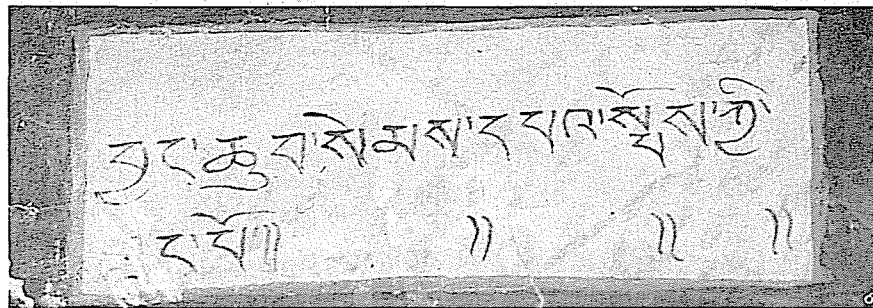 བྱང་ཆུབ་སེམས་དཔའ་སྤོས་ཀྱི་
ང་པོ།། །། །། །།